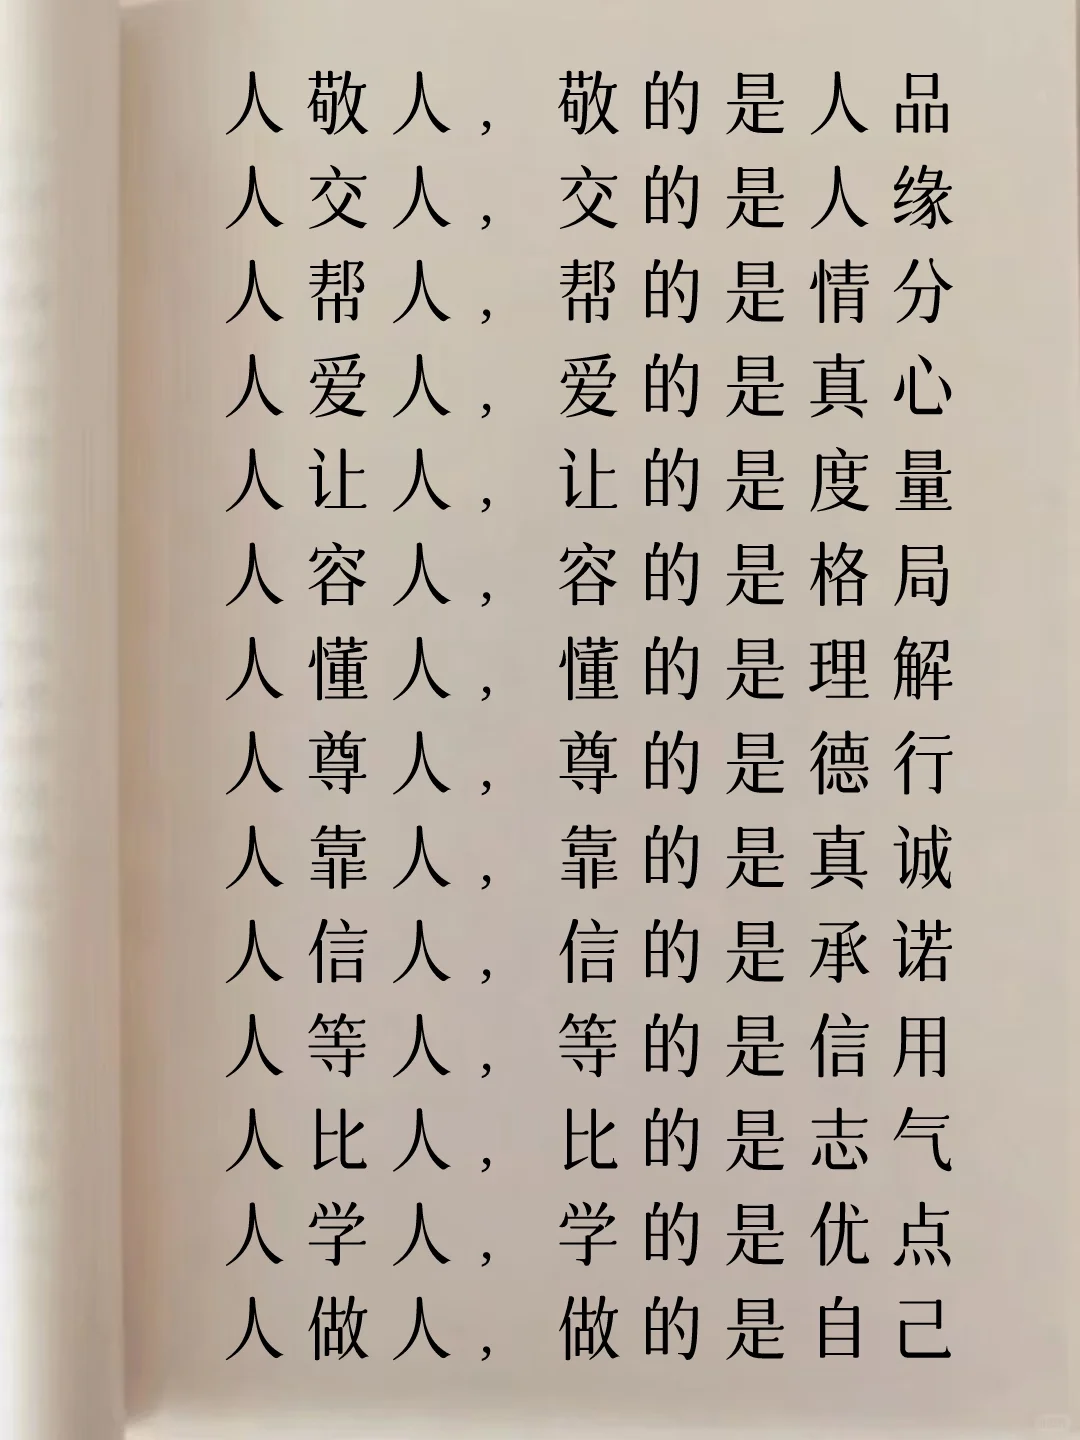 人敬人，敬的是人品
人交人，交的是人缘
人帮人，帮的是情分
人爱人，爱的是真心
人让人，让的是度量
人容人，容的是格局
人懂人，懂的是理解
人尊人，尊的是德行
人靠人，靠的是真诚
人信人，信的是承诺
人等人，等的是信用
人比人，比的是志气
人学人，学的是优点
人做人，做的是自己